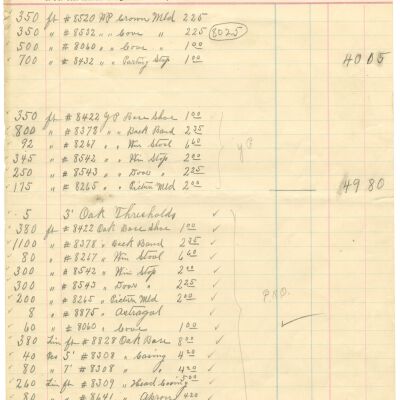 350 ft #8520 WP Crown Mld 225
350 " #8532 " " Cove " 225 8025
500 " #8060 " " Cove " 1 00
700 " #8432 " " Parting Stop 1 00 40 05
350 ft #8422 YP Base Shoe 1 00
800 " #8378 " " Back Band 2 25
92 " #8267 " " Win Stool 6 60
345 " #8542 " " Win Stop 2 00 YP
250 " #8543 " " Door " 2 25
175 " #8265 " " Picture Mld 2 00 49 80
5 3' Oak Thresholds
380 ft #8422 Oak Base Shoe 1 00
1100 " #8378 " Back Band 2 25
80 " #8267 " Win Stool 6 60
300 " #8542 " Win Stop 2 00
300 " #8543 " Door " 2 25
200 " #8265 " Picture Mld 2 00
8 " #8875 " Astragal P.R.O.
60 " #8060 " Cove 1 00
380 Lin ft #8328 Oak Base 8 00
40 Pcs 5' #8308 " Casing 4 20
80 " 7' #8308 " " 4 20
260 Lin ft #8309 " Head Casing 5 00
80 " #8641 " Apron 4 20